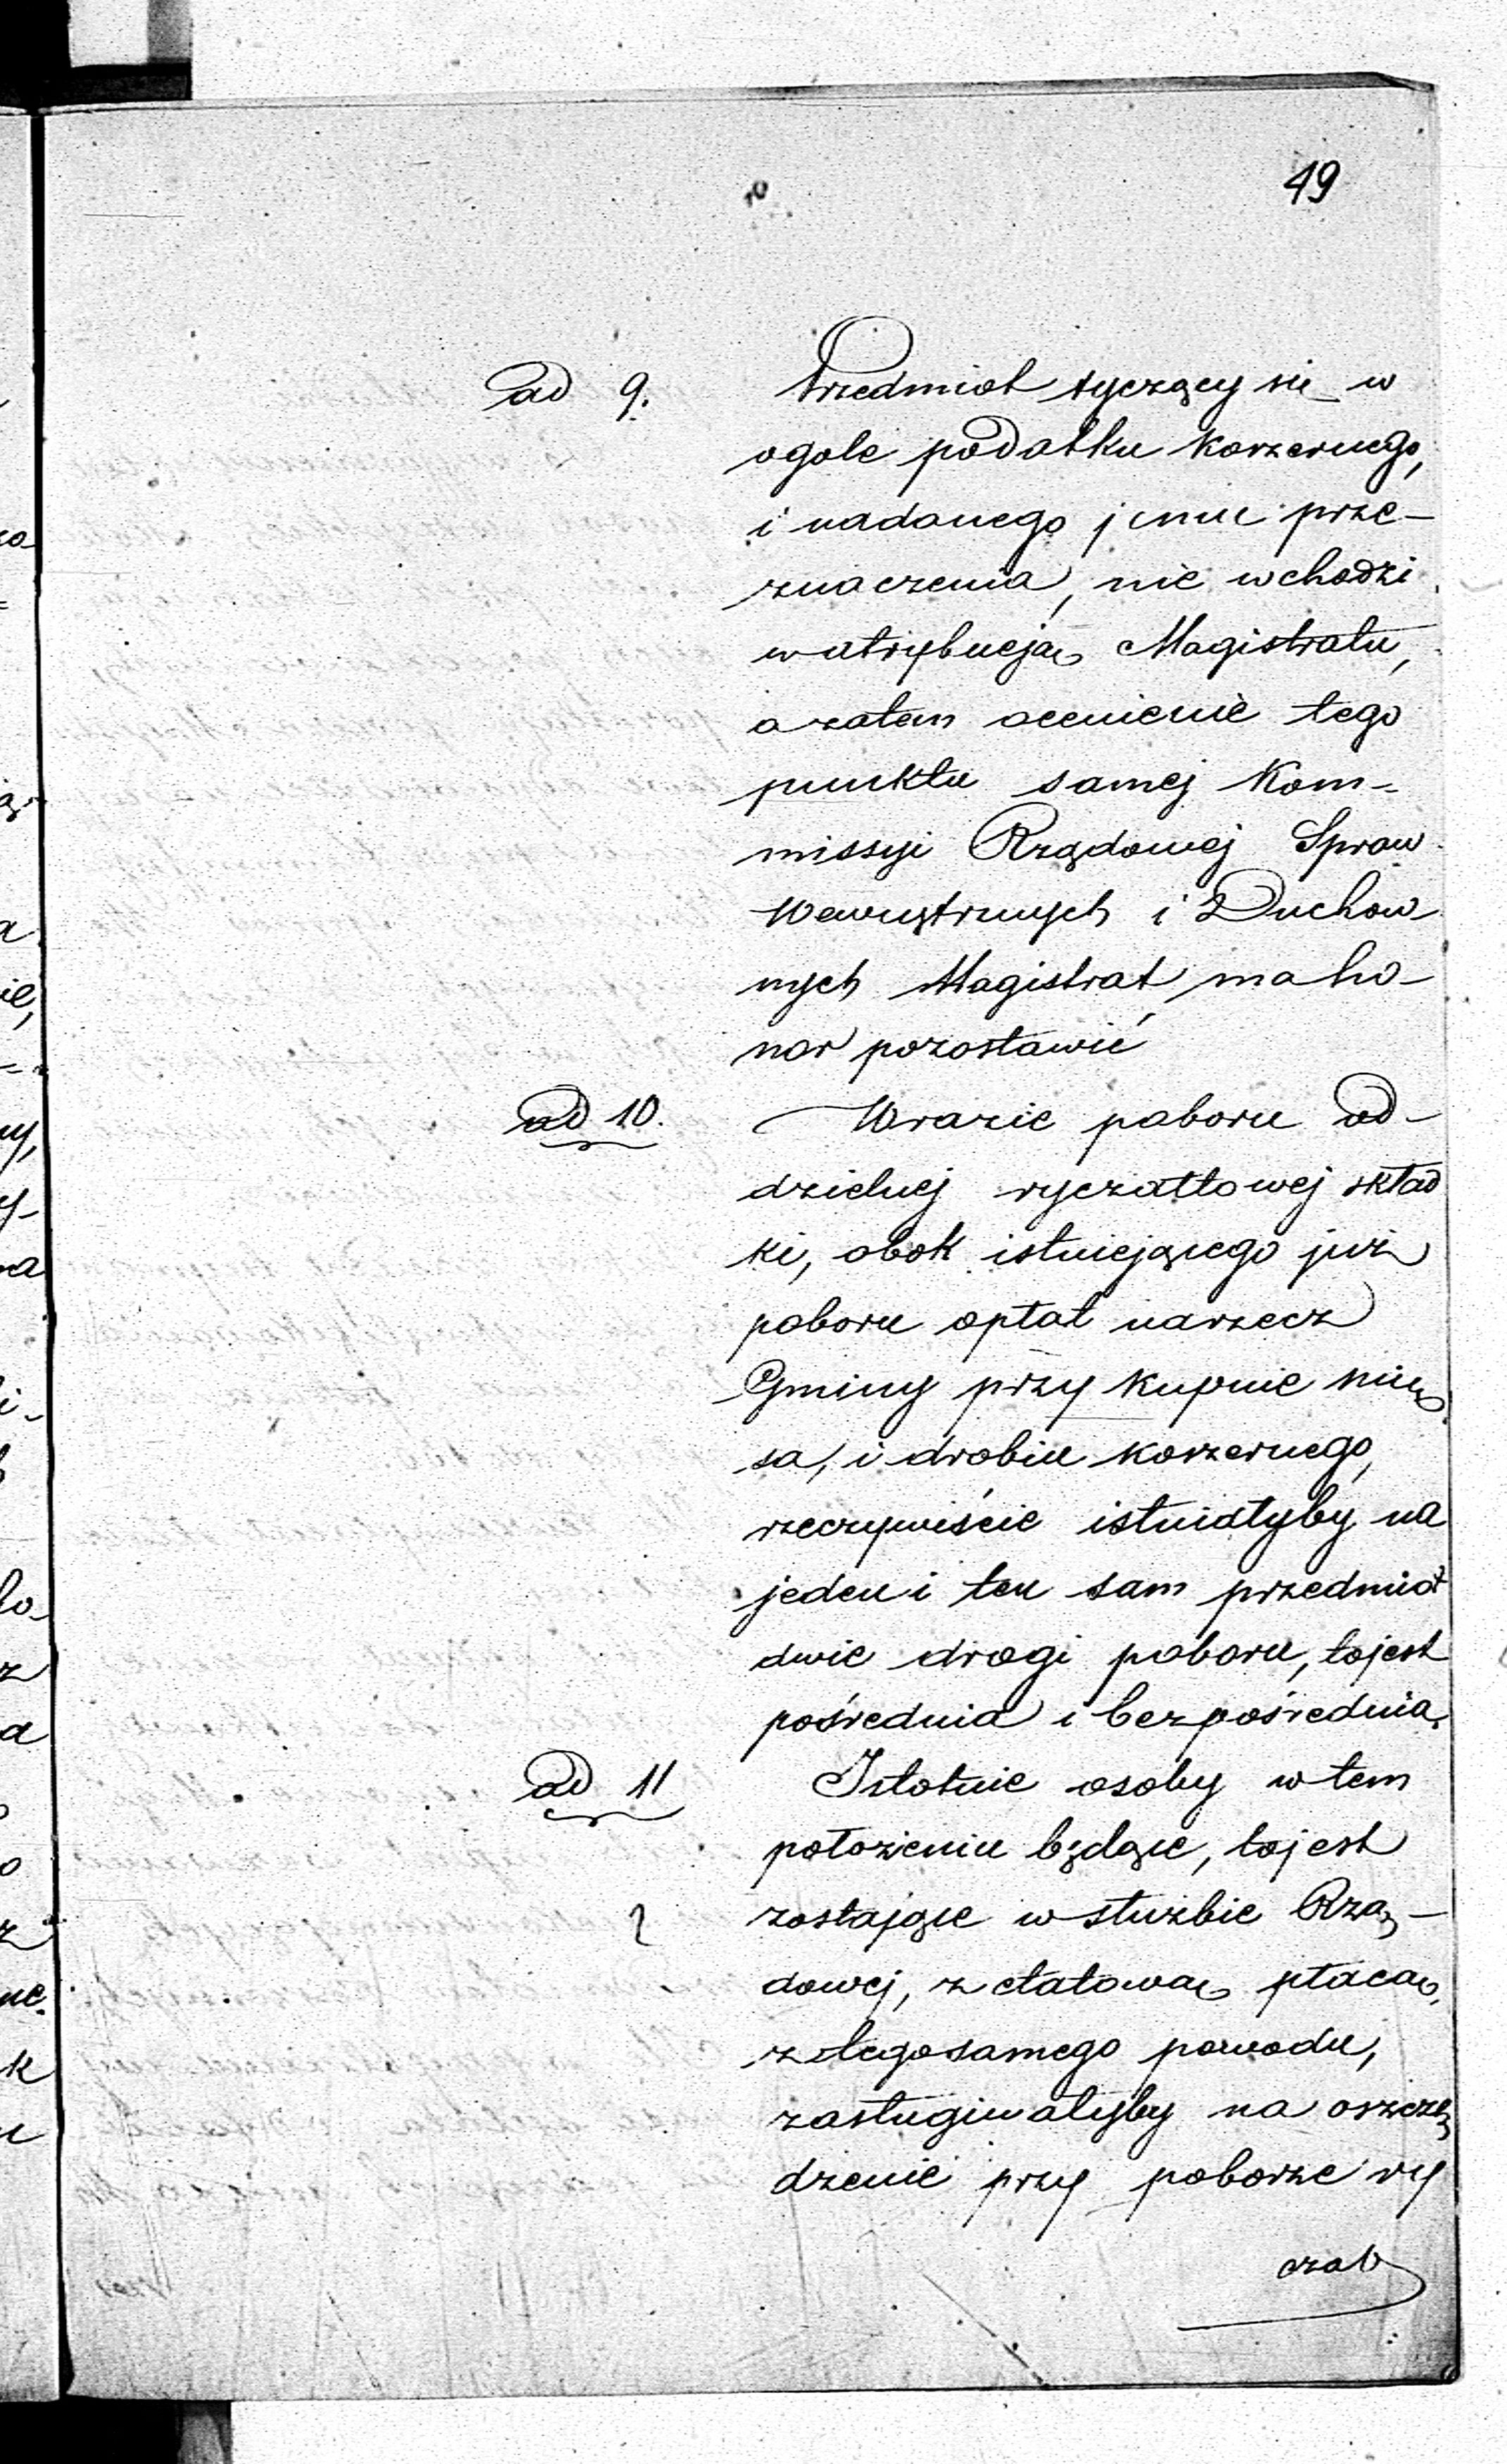 49
ad 9. Przedmiot tyczący się w
ogole podatku koszernego,
i nadanego jemu prze-
znaczenia, nie wchodzi
w atrybucją Magistratu,
a zatem ocenienie tego
punktu samej Kom-
missyi Rządowej Spraw
Wewnętrznych i Duchow
nych Magistrat ma ho-
nor pozostawić
ad 10. W razie poboru od-
dzielnej ryczałtowej skład
ki, obok istniejącego już
poboru opłat na rzecz
Gminy przy kupnie mię
sa, i drobiu koszernego,
rzeczywiście istniałyby na
jeden i ten sam przedmiot
dwie drogi poboru, to jest
pośrednia i bezpośrednia.
ad 11 Istotnie osoby w tem
położeniu będące, to jest
zostające w służbie Rzą-
dowej, z etatową płacą,
z tego samego powodu,
zasługiwałyby na oszczę
dzenie przy poborze ry
czał